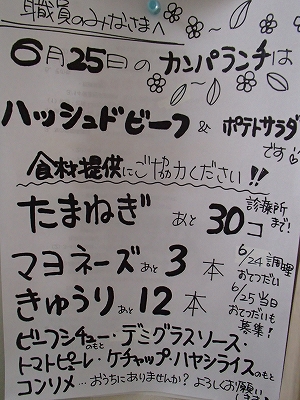 職員のみなさまへ
6月25日のカンパランチは
ハッシュドビーフ & ポテトサラダ
です
食材提供にご協力ください!!
たまねぎ あと 30コ
診療所まで!
マヨネーズ あと 3 本
6/24 調理おてつだい
きゅうり あと 12 本
6/25 当日おてつだいも募集!
ビーフシチューのもと・デミグラスソース・
トマトピューレ・ケチャップ・ハヤシライスのもと
コンソメ…おうちにありませんか? よろしくお願いします